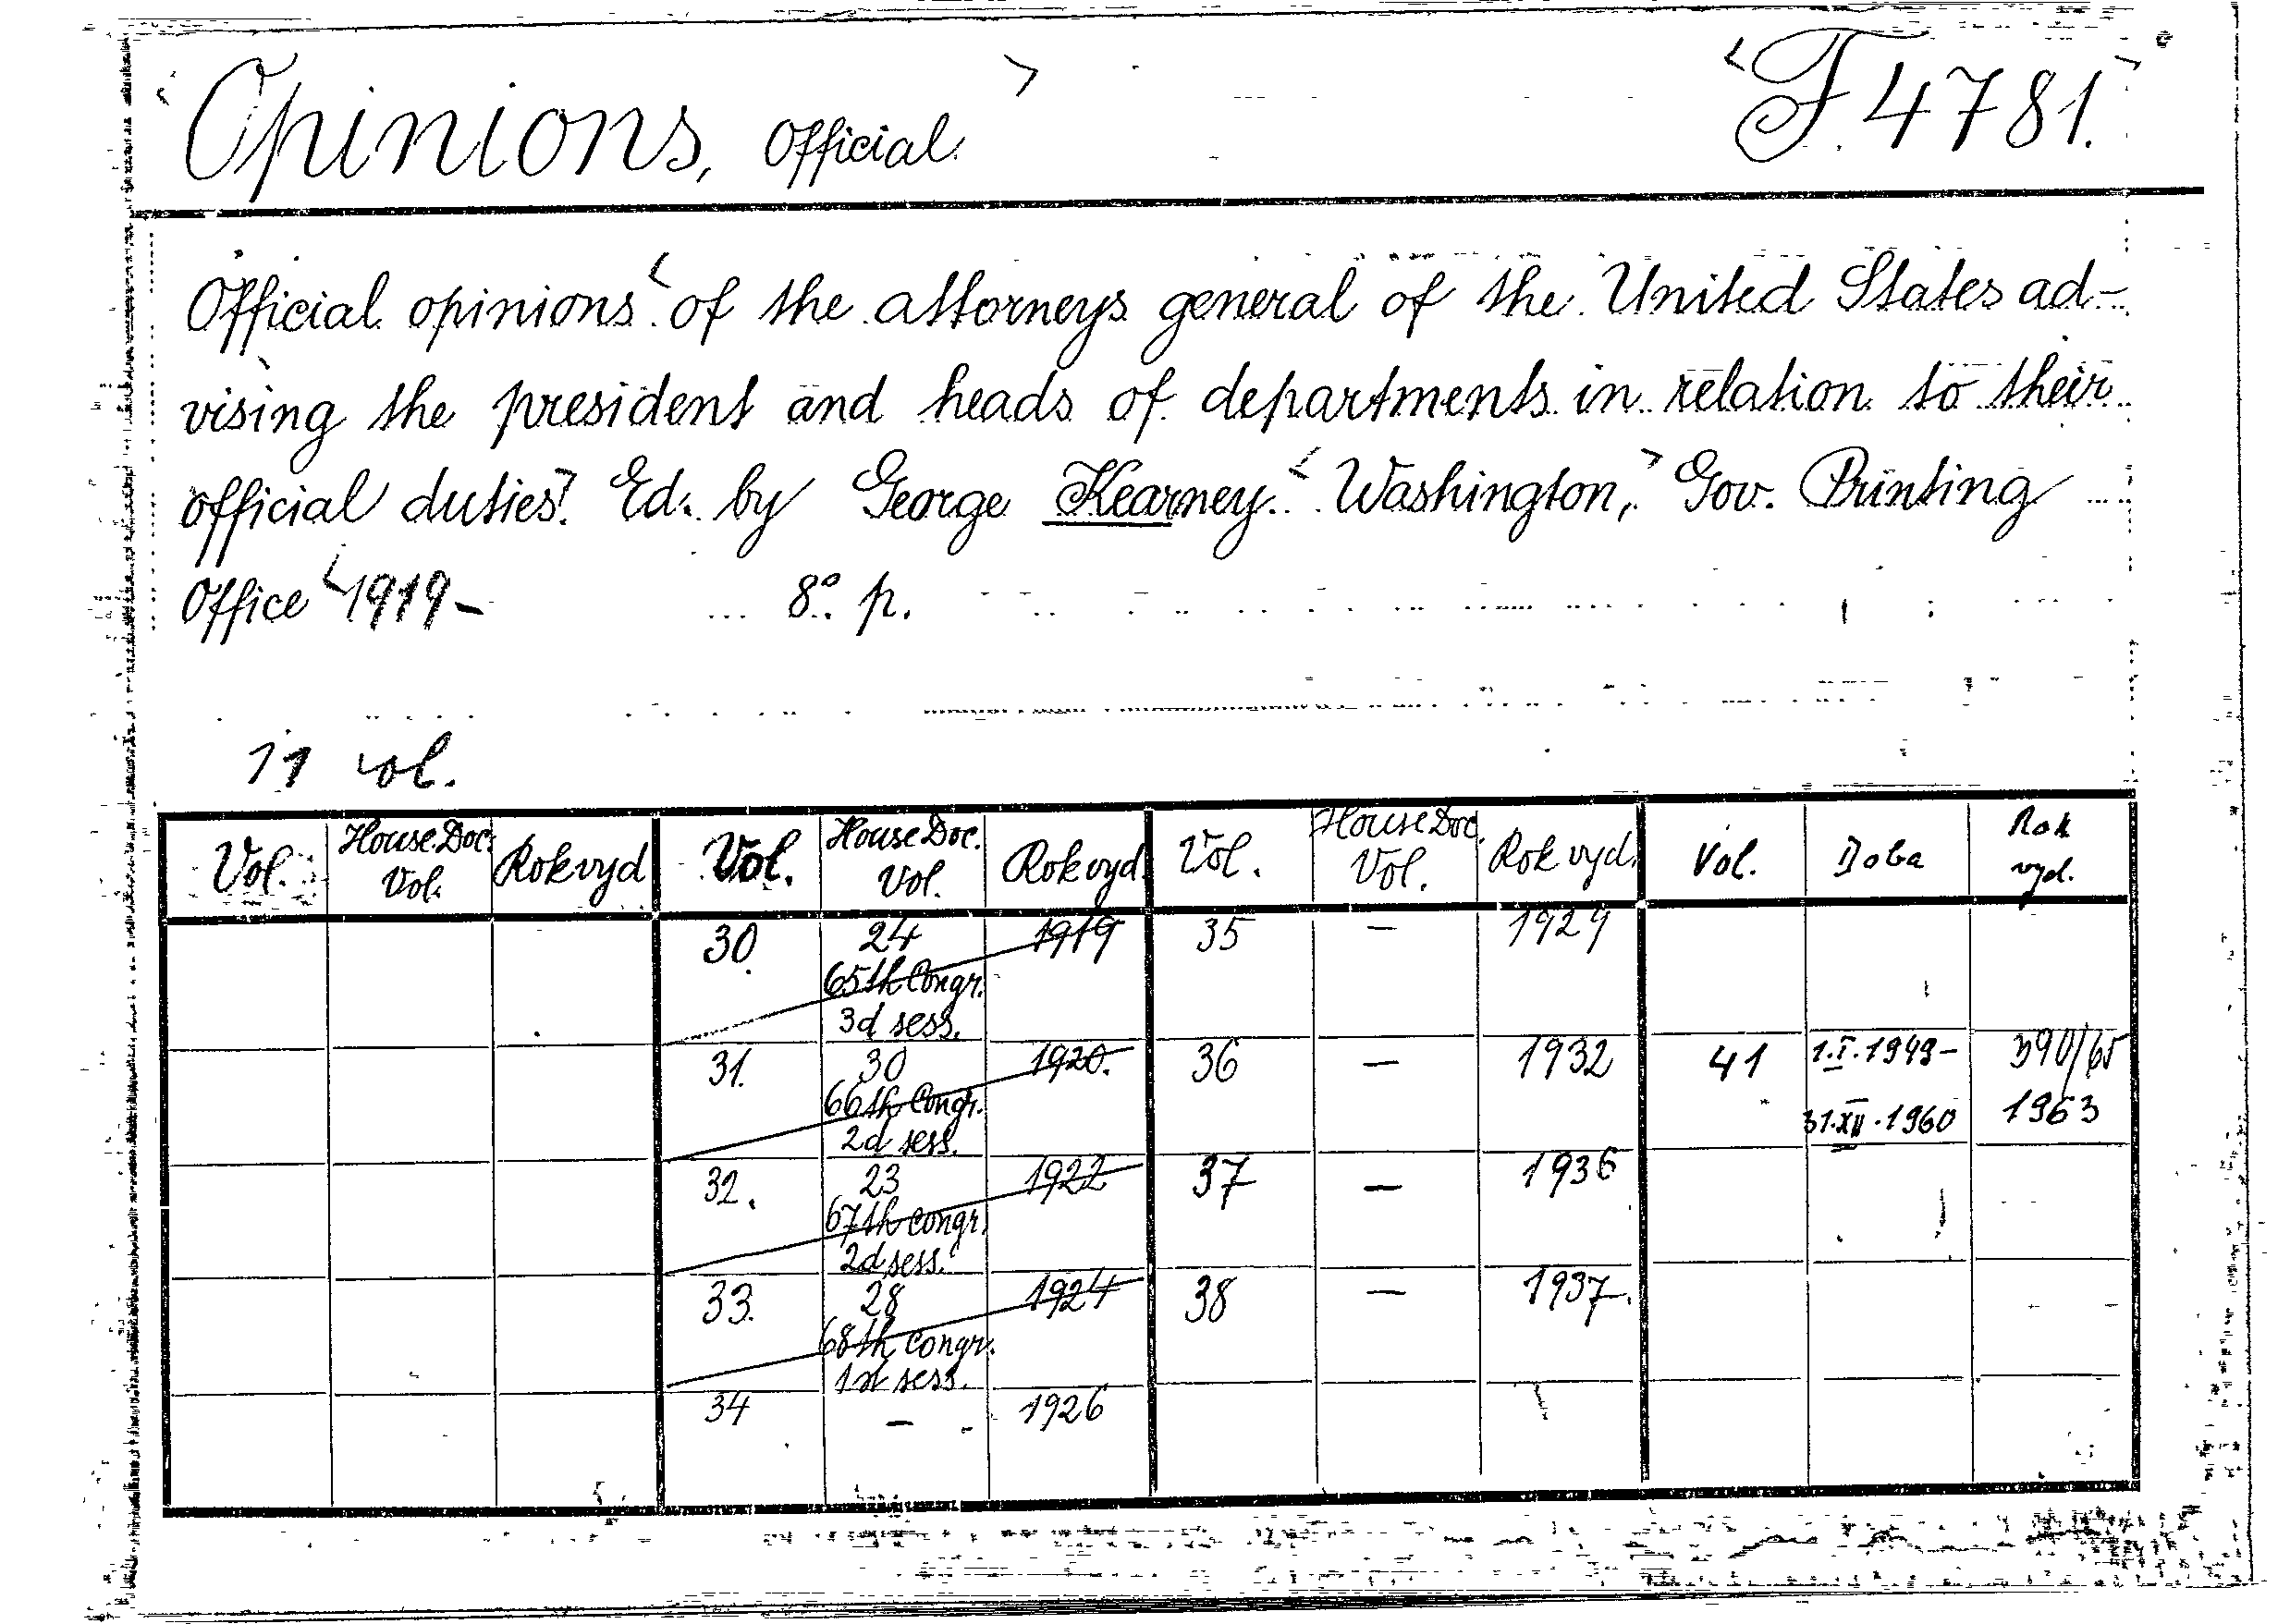 Opinions, official. F 4781.
Official opinions of the attorneys general of the United States ad-
vising the president and heads of departments in relation to their
official duties. Ed. by George Kearney. Washington, Gov. Printing
Office 1919- 8° p.
11 vol.
Vol. House Doc. Vol. Rok vyd Vol. House Doc. Vol. Rok vyd. Vol. House Doc. Vol. Rok vyd. Vol. Doba Rok vyd.
30. 24 1919 35 — 1929
65th Congr.
3d sess.
31. 30 1920. 36 — 1932 41 1.I.1949- 390/65
66th Congr. 31.XII.1960 1963
2d sess.
32. 23 1922 37 — 1936
67th Congr.
2d sess.
33. 28 1924 38 — 1937.
68th Congr.
1st sess.
34 — 1926